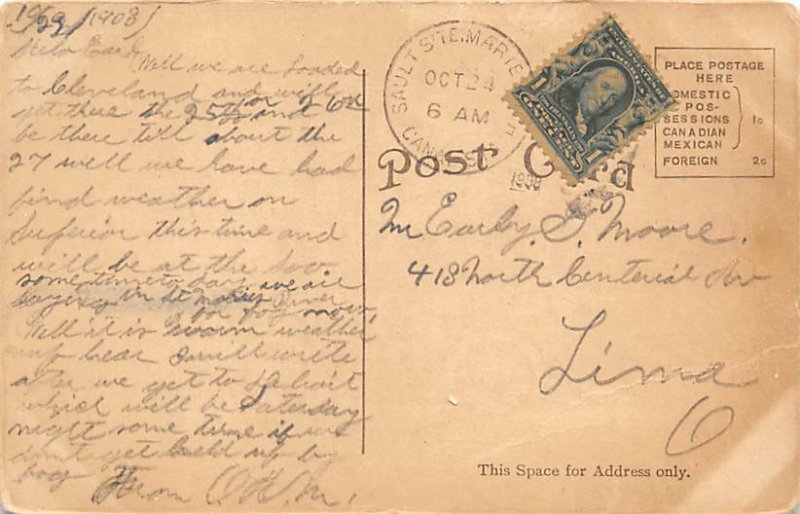 10/23/1908/
Hello Early
Well we are loaded
to Cleveland and will
get there the 25th or 26th and
be there till about the
27 well we have had
find weather on
Superior this time and
will be at the Soo
some time to day, we are
laying in St Marys River
for fog now,
Well it is warm weather
up hear I will write
after we get to
which will be Saturday
night some time if we
dont get held up by
fog From O. H. M.
SAULT STE. MARIE
OCT 24
6 AM
CANAL STA
1908
Post Card
PLACE POSTAGE
HERE
DOMESTIC
POS-
SESSIONS 1c
CANADIAN
MEXICAN
FOREIGN 2c
Mr Early. S. Moore.
418 North Centerial Av
Lima
O
This Space for Address only.